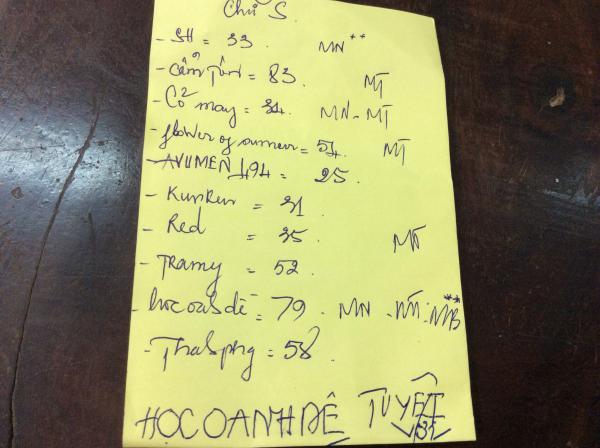 Chú S.
- SH = 33. MN **
- Cẩm Tân = 83. MT
- Cỏ may = 34. MN - MT
- flower of sumer = 54. MT
- AVUMEN 494 = 25.
- KunKun = 31
- Red = 35. MT
- Tramy = 52.
- hocoabdê = 79. MN - MT - MB **
- Thabphg = 58.
HỌC OANH ĐÊ TUYẾT